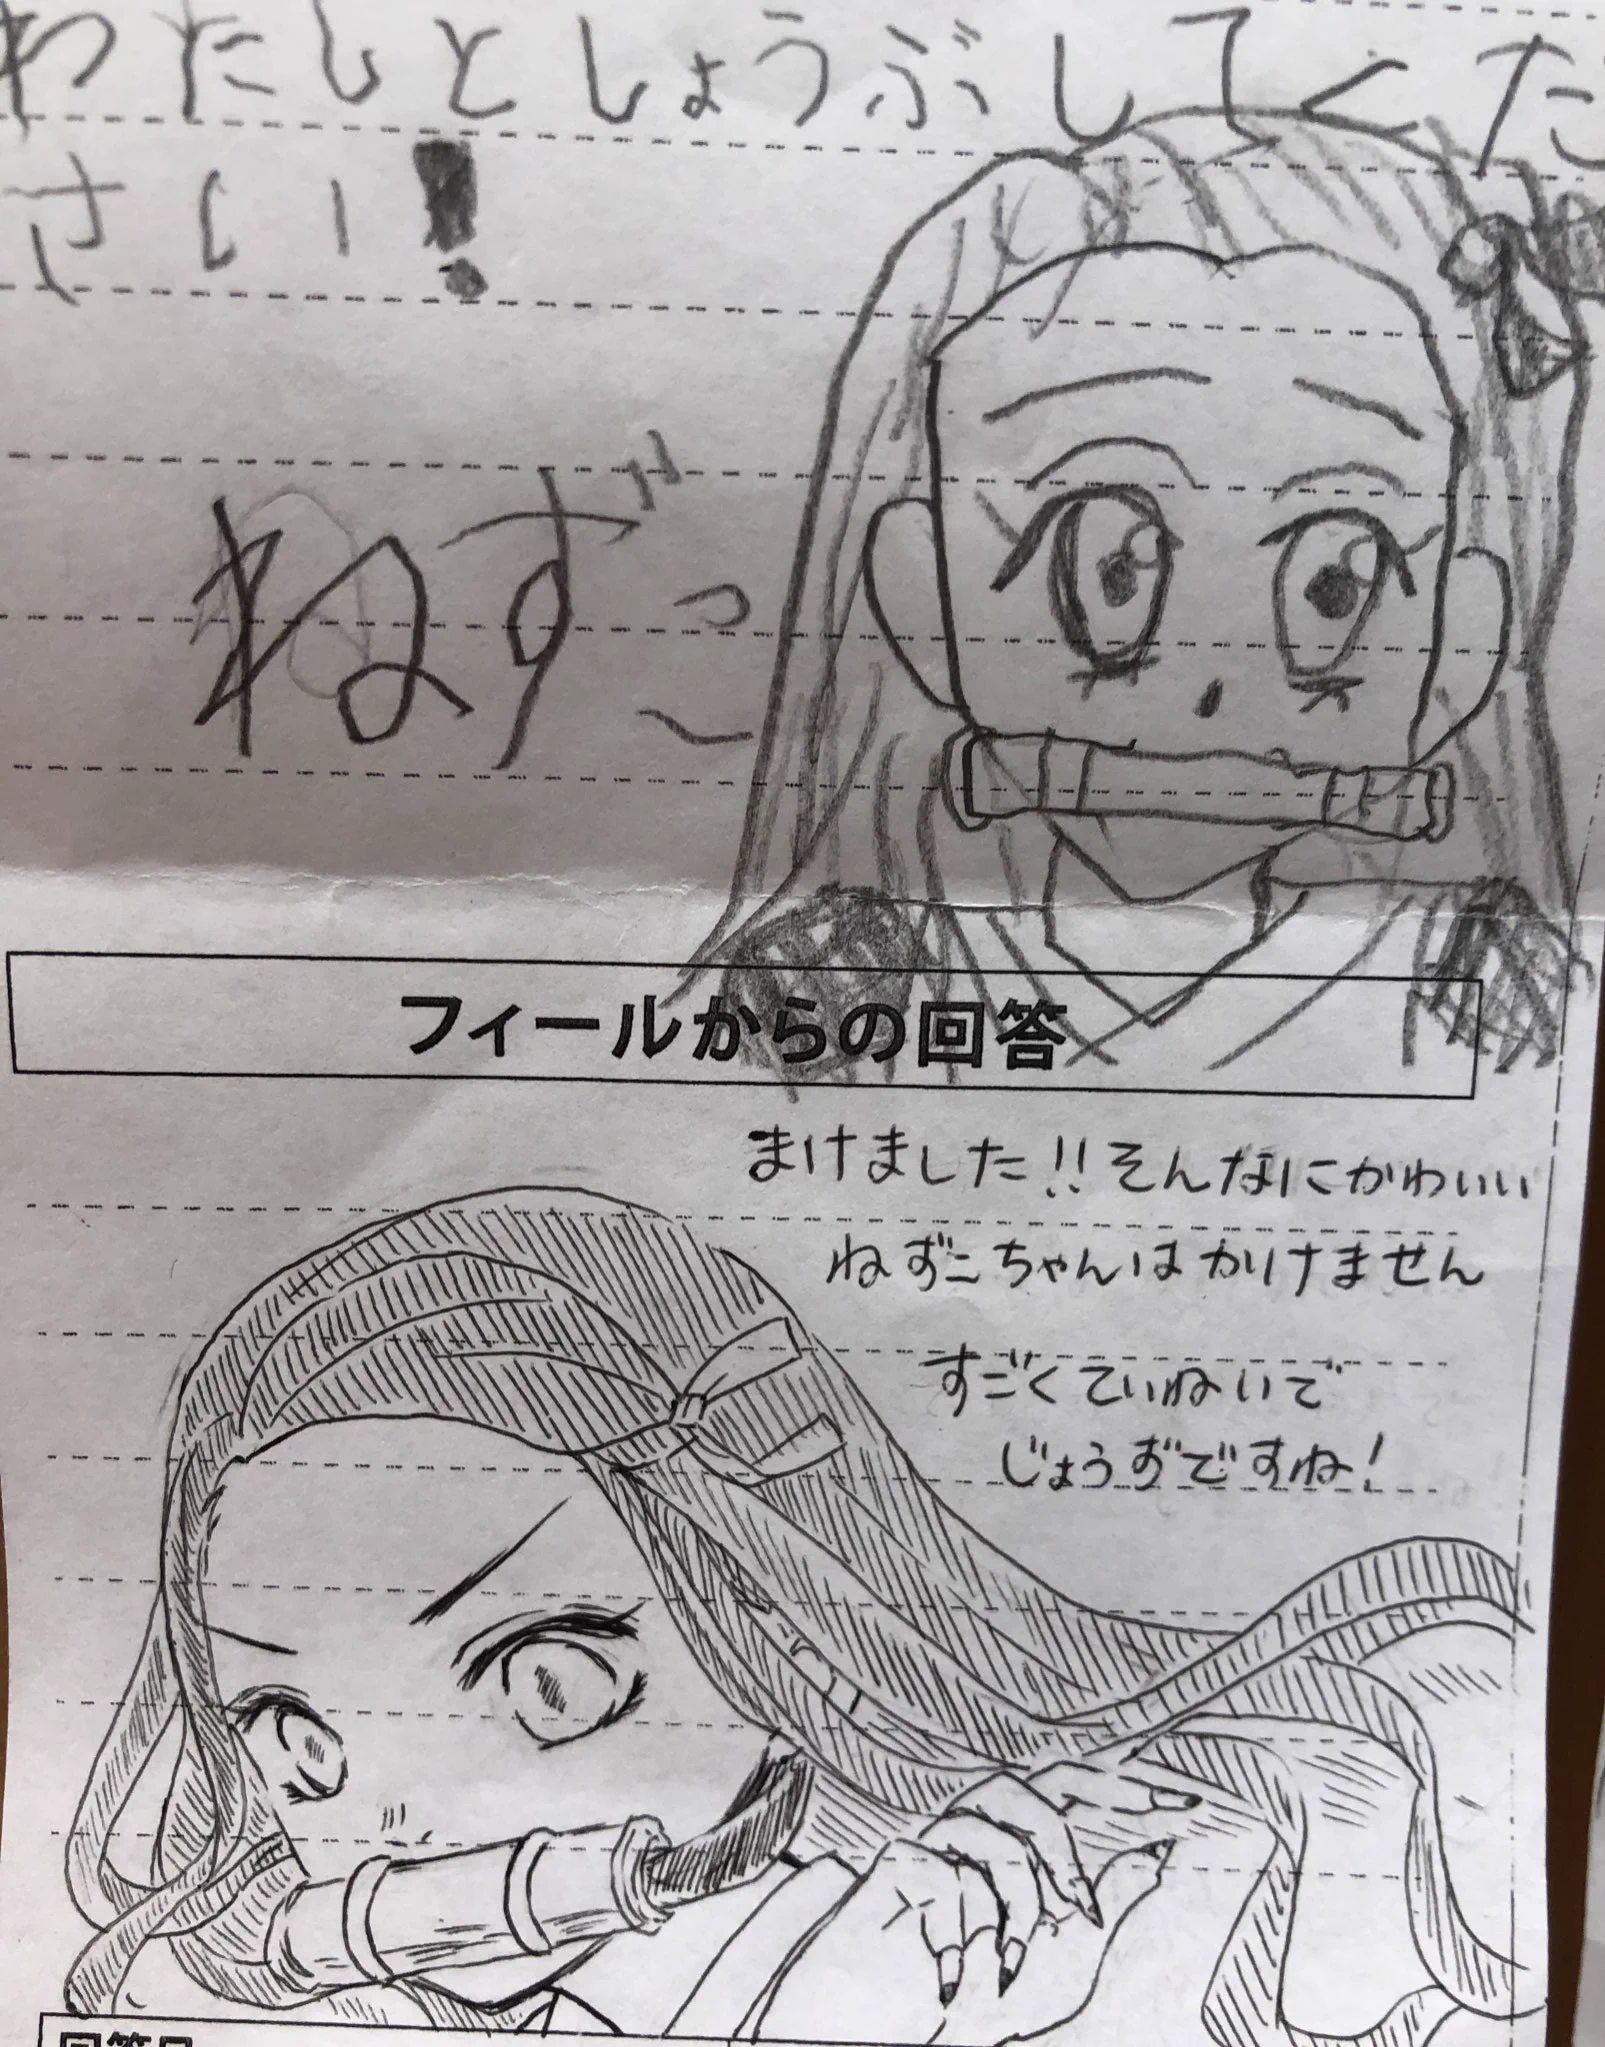 わたしとしょうぶしてくだ
さい!
ねずこ
フィールからの回答
まけました!!そんなにかわいい
ねずこちゃんはかけません
すごくていねいで
じょうずですね!